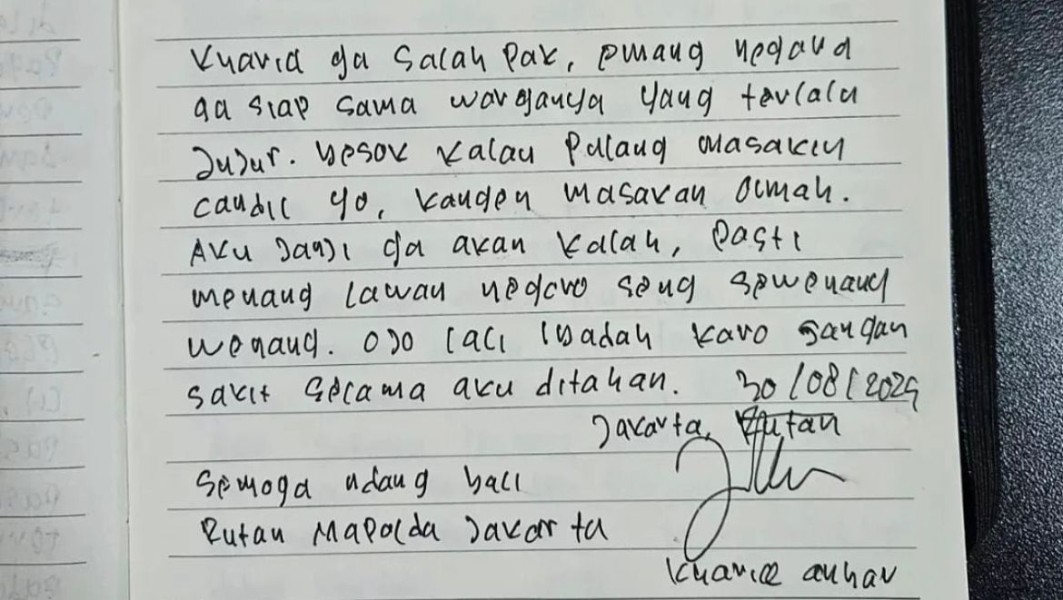 Kharia ga salah Pak, emang negara
ga siap sama warganya yang terlalu
jujur. besok kalau pulang masakin
candil yo, kangen masakan Omah.
Aku janji ga akan kalah, pasti
menang lawan negoro seng sewenang
wenang. ojo lali ibadah karo jangan
sakit selama aku ditahan. 30/08/2025
Jakarta, Rutan
Semoga udang bali
Rutan Mapolda Jakarta
Kharia anhar